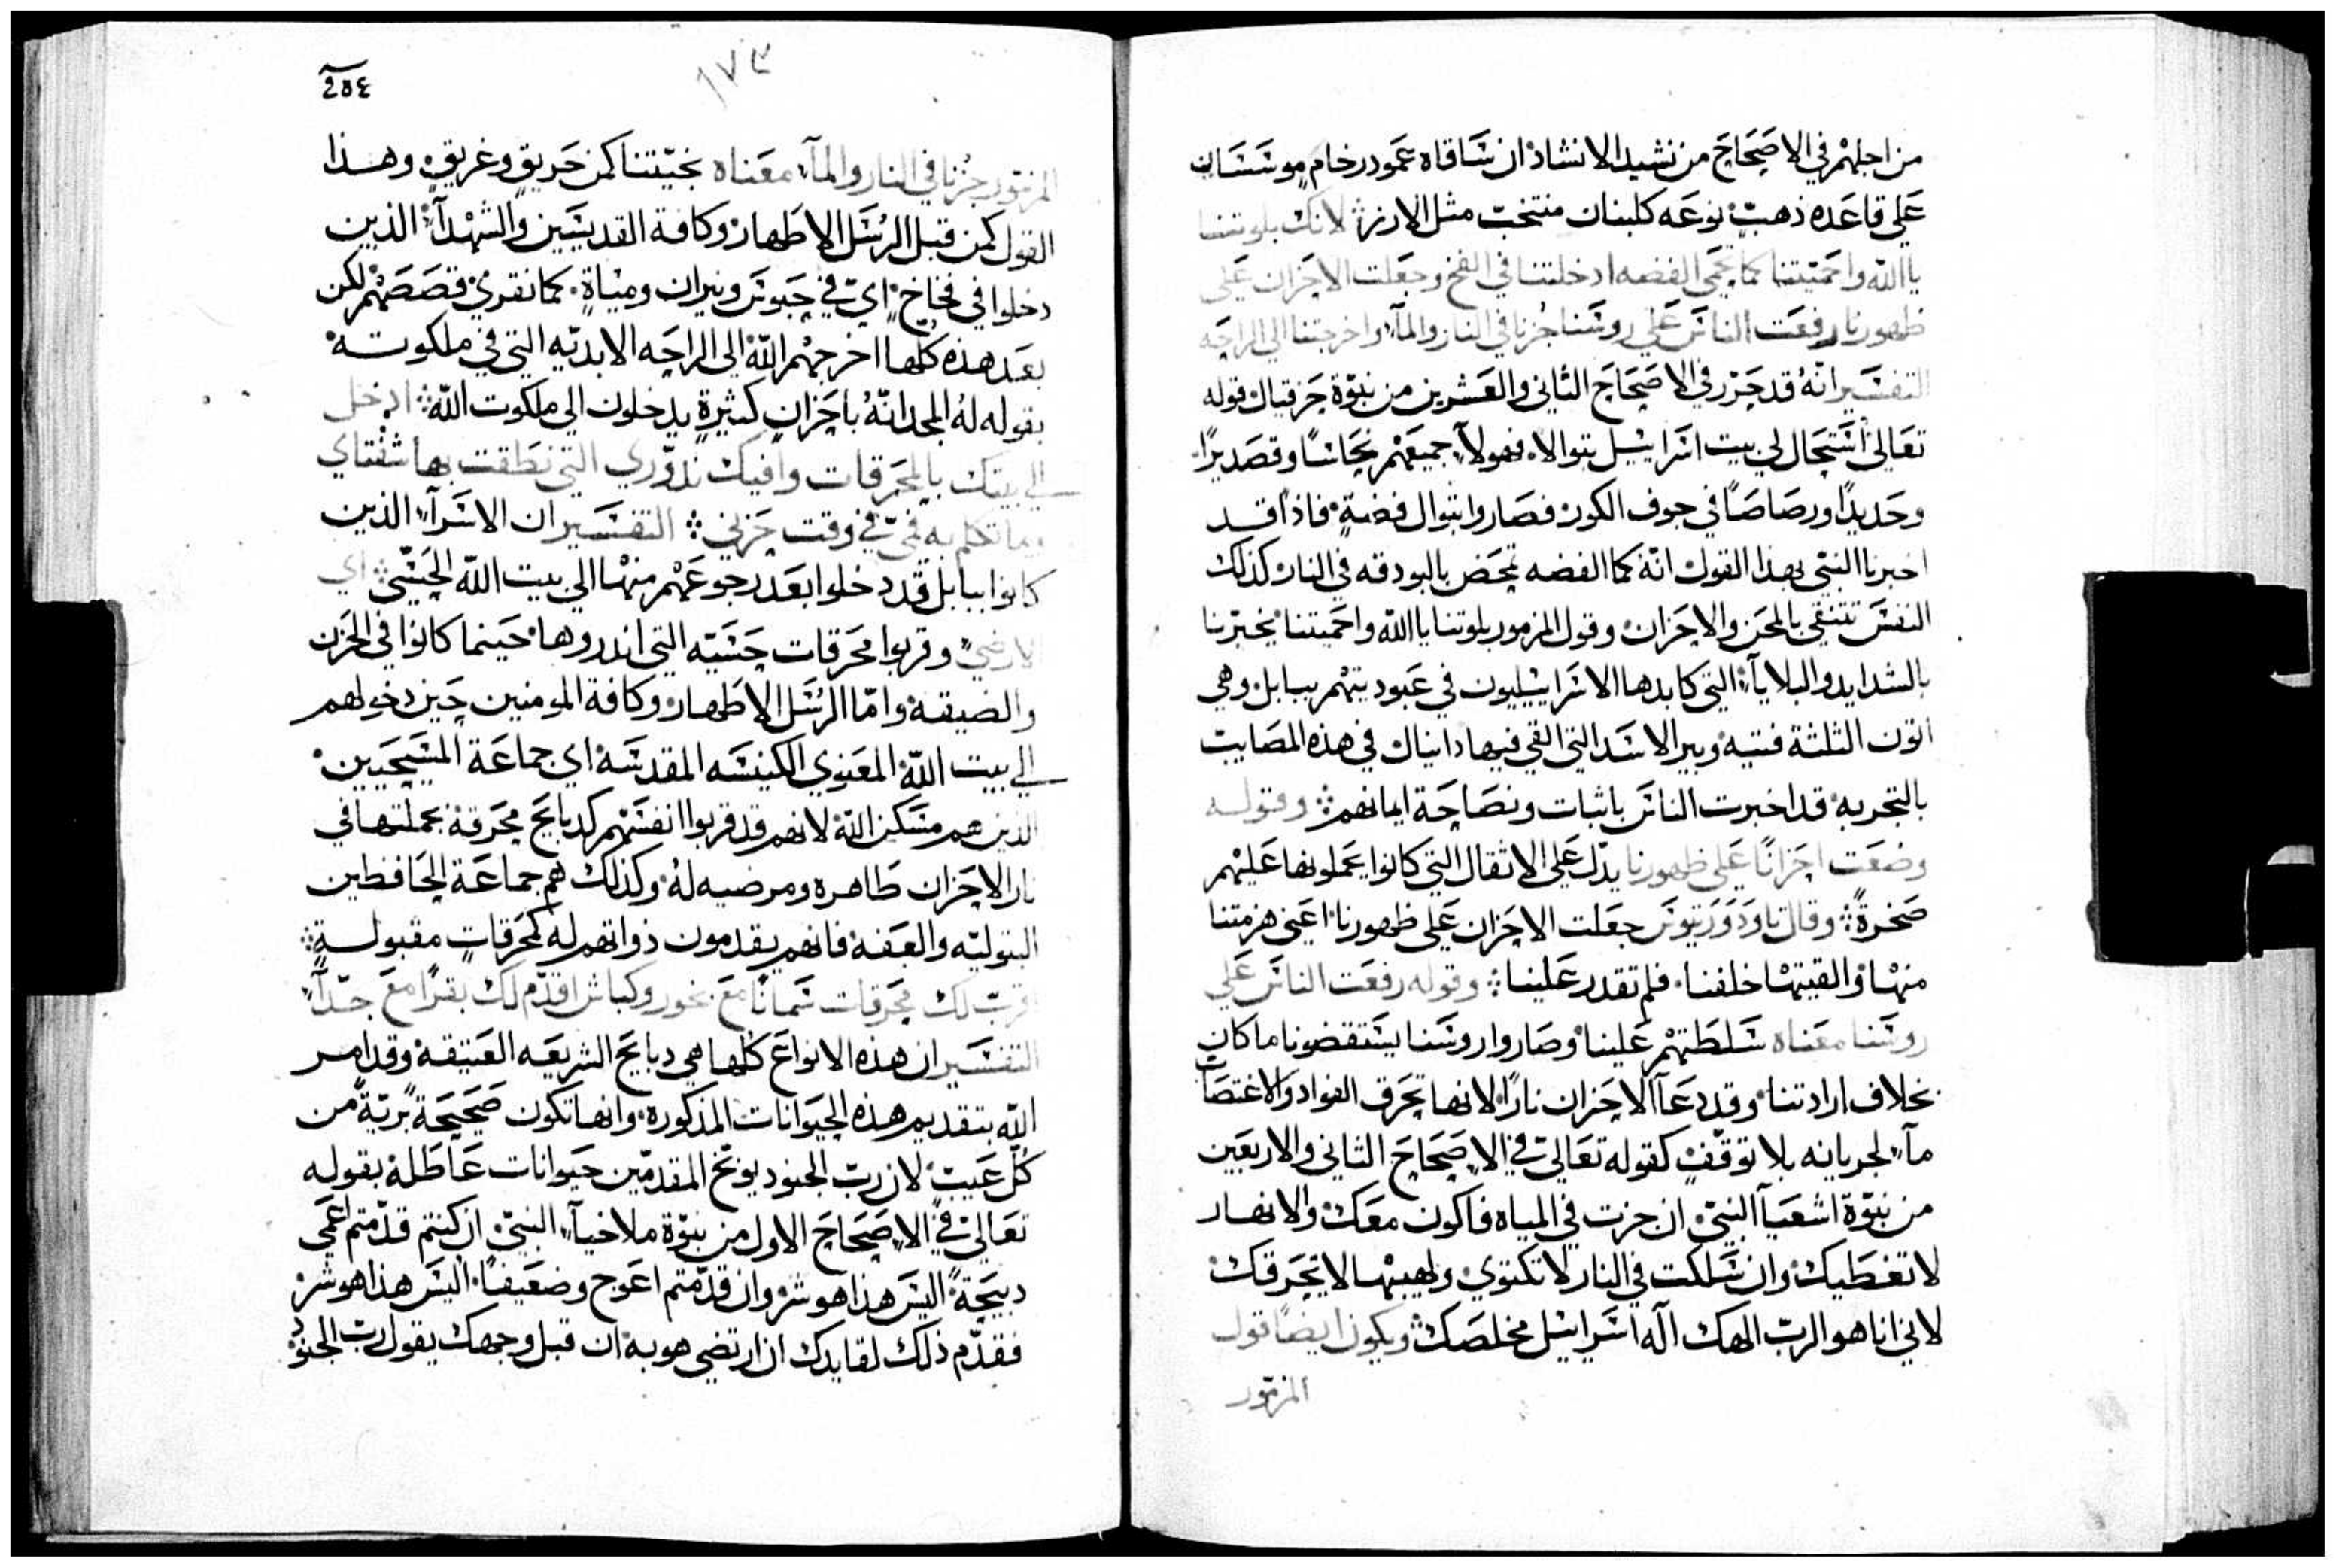 من اجلهم في الاصحاح من نشيد الانشاد ان ساقاه عمود رخام موسسان
علي قاعده ذهب نوعه كلبنان منتخب مثل الارز لانك بلوتنا
يا الله واحميتنا كما تحمي الفضه ادخلتنا في الفخ وجعلت الاحزان علي
ظهورنا رفعت الناس علي روسنا جزنا في النار والمآء واخرجتنا الي الراحه
التفسير انه قد حرر في الاصحاح الثاني والعشرين من نبوة حزقيال قوله
تعالي استحال لي بيت اسراييل بتوالا فهولآء جميعهم نحاسًا وقصديرًا
وحديدًا ورصاصًا في جوف الكور فصاروا بتوال فضةٍ فاذا قد
اخبرنا النبي بهذا القول انه كما الفضه تمحض بالبودقه في النار كذلك
النفس تتنقي بالمحن والاحزان وقول المزمور بلوتنا يا الله واحميتنا يخبرنا
بالشدايد والبلايآء التي كابدها الاسراييليون في عبوديتهم ببابل وهي
اتون الثلثة فتيه وبير الاسد التي القي فيها دانيال في هذه المصايب
بالتجربه قد اخبرت الناس باثبات ونصاحة ايمانهم وقوله
وضعت احزانًا علي ظهورنا يدل علي الاثقال التي كانوا يحملونها عليهم
صخرةً وقال تاودوريتوس جعلت الاحزان علي ظهورنا اعني هزمتنا
منها والقيتها خلفنا فلم تقدر علينا وقوله رفعت الناس علي
روسنا معناه سلطتهم علينا وصاروا روسنا يستقضونا ما كان
بخلاف ارادتنا وقد دعآ الاحزان نارًا لانها تحرق الفواد والاغتصاب
مآء لجريانه بلا توقفٍ كقوله تعالي في الاصحاح الثاني والاربعين
من نبوة اشعيآ النبي ان جزت في المياه فاكون معك والانهار
لا تغطيك وان سلكت في النار لا تكتوي ولهيبها لا يحرقك
لاني انا هو الرب الهك اله اسراييل مخلصك ويكون ايضًا قول
المزمور
٢٥٤
١٧٣
المزمور جزنا في النار والمآء معناه نجيتنا كمن حريقٍ وغريقٍ وهذا
القول كمن قبل الرسل الاطهار وكافة القديسين والشهدآء الذين
دخلوا في فخاخ اي في حبوس ونيران ومياةٍ كما نقري قصصهم لكن
بعد هذه كلها اخرجهم الله الي الراحه الابديه التي في ملكوته
بقوله له المجد انه باحزانٍ كثيرةٍ يدخلون الي ملكوت الله ادخل
الي بيتك بالمحرقات وافيك نذوري التي نطقت بها شفتاي
وما تكلم به فمي في وقت حزني التفسير ان الاسرآء الذين
كانوا ببابل قد دخلوا بعد رجوعهم منها الي بيت الله الحسي اي
الارضي وقربوا محرقات حسيه التي انذروها حينما كانوا في الحزن
والضيقة واما الرسل الاطهار وكافة المومنين حين دخولهم
الي بيت الله المعنوي الكنيسه المقدسه اي جماعة المسيحيين
الذين هم مسكن الله لانهم قد قربوا انفسهم كدبايح محرقة بجملتها في
نار الاحزان طاهره ومرضيه له وكذلك هم جماعة الحافظين
البتوليه والعفه فانهم يقدمون ذواتهم له كمحرقاتٍ مقبولةٍ
اقرب لك محرقات سمانًا مع بخور وكباش اقدم لك بقرًا مع جدآء
التفسير ان هذه الانواع كلها هي دبايح الشريعه العتيقة وقد امر
الله بتقديم هذه الحيوانات المذكورة وانها تكون صحيحةً بريةً من
كل عيب لان رب الجنود يوبخ المقدمين حيوانات عاطلة بقوله
تعالي في الاصحاح الاول من نبوة ملاخيآء النبي ان كنتم قدمتم اعمي
دبيحةً اليس هذا هو شر وان قدمتم اعوج وضعيفًا اليس هذا هو شر
فقدم ذلك لقايدك ان ارتضي هو به ان قبل وجهك يقول رب الجنود